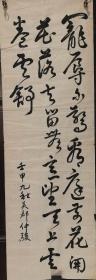 寵辱不驚看庭前花開
花落去留無意望天上雲
卷雲舒
壬申九秋